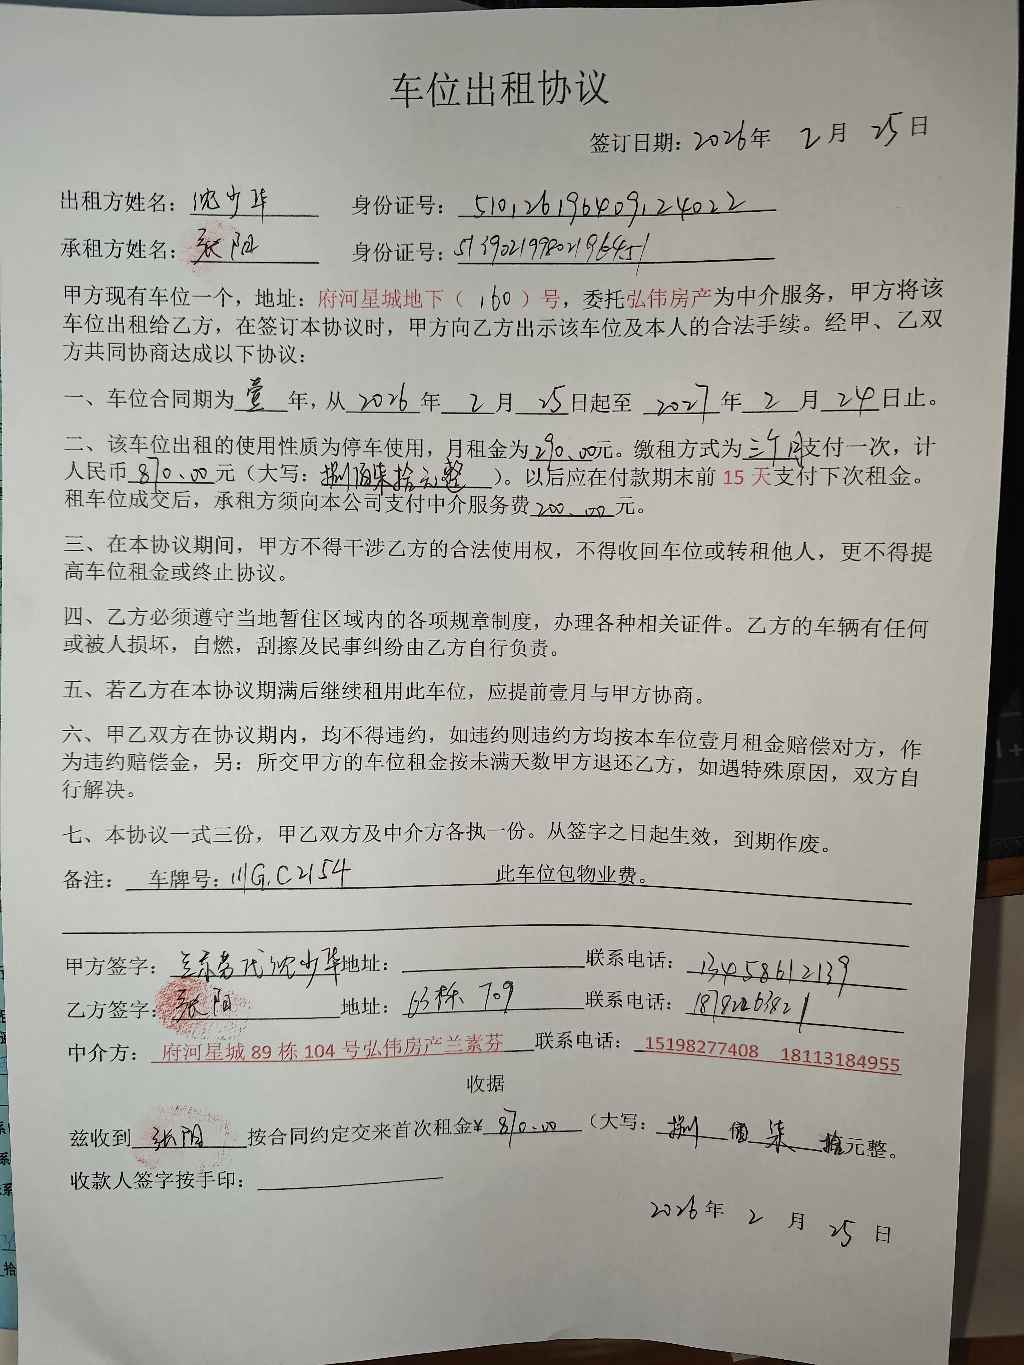 车位出租协议
签订日期：2026年 2月 25日
出租方姓名：沈少华 身份证号：510126196409124022
承租方姓名：张阳 身份证号：513902199802196451
甲方现有车位一个，地址：府河星城地下（160）号，委托弘伟房产为中介服务，甲方将该
车位出租给乙方，在签订本协议时，甲方向乙方出示该车位及本人的合法手续。经甲、乙双
方共同协商达成以下协议：
一、车位合同期为壹年，从2026年2月25日起至 2027年2月24日止。
二、该车位出租的使用性质为停车使用，月租金为290.00元。缴租方式为三个月支付一次，计
人民币870.00元（大写：捌佰柒拾元整）。以后应在付款期末前 15 天支付下次租金。
租车位成交后，承租方须向本公司支付中介服务费200.00元。
三、在本协议期间，甲方不得干涉乙方的合法使用权，不得收回车位或转租他人，更不得提
高车位租金或终止协议。
四、乙方必须遵守当地暂住区域内的各项规章制度，办理各种相关证件。乙方的车辆有任何
或被人损坏，自燃，刮擦及民事纠纷由乙方自行负责。
五、若乙方在本协议期满后继续租用此车位，应提前壹月与甲方协商。
六、甲乙双方在协议期内，均不得违约，如违约则违约方均按本车位壹月租金赔偿对方，作
为违约赔偿金，另：所交甲方的车位租金按未满天数甲方退还乙方，如遇特殊原因，双方自
行解决。
七、本协议一式三份，甲乙双方及中介方各执一份。从签字之日起生效，到期作废。
备注： 车牌号：川G.C2154 此车位包物业费。
甲方签字：兰素芬代沈少华 地址： 联系电话：13458612139
乙方签字：张阳 地址：63栋 709 联系电话：
中介方： 府河星城 89 栋 104 号弘伟房产兰素芬 联系电话： 15198277408 18113184955
收据
兹收到 张阳 按合同约定交来首次租金¥ 870.00 （大写： 捌 佰 柒 拾元整。
收款人签字按手印：
2026年 2 月 25 日